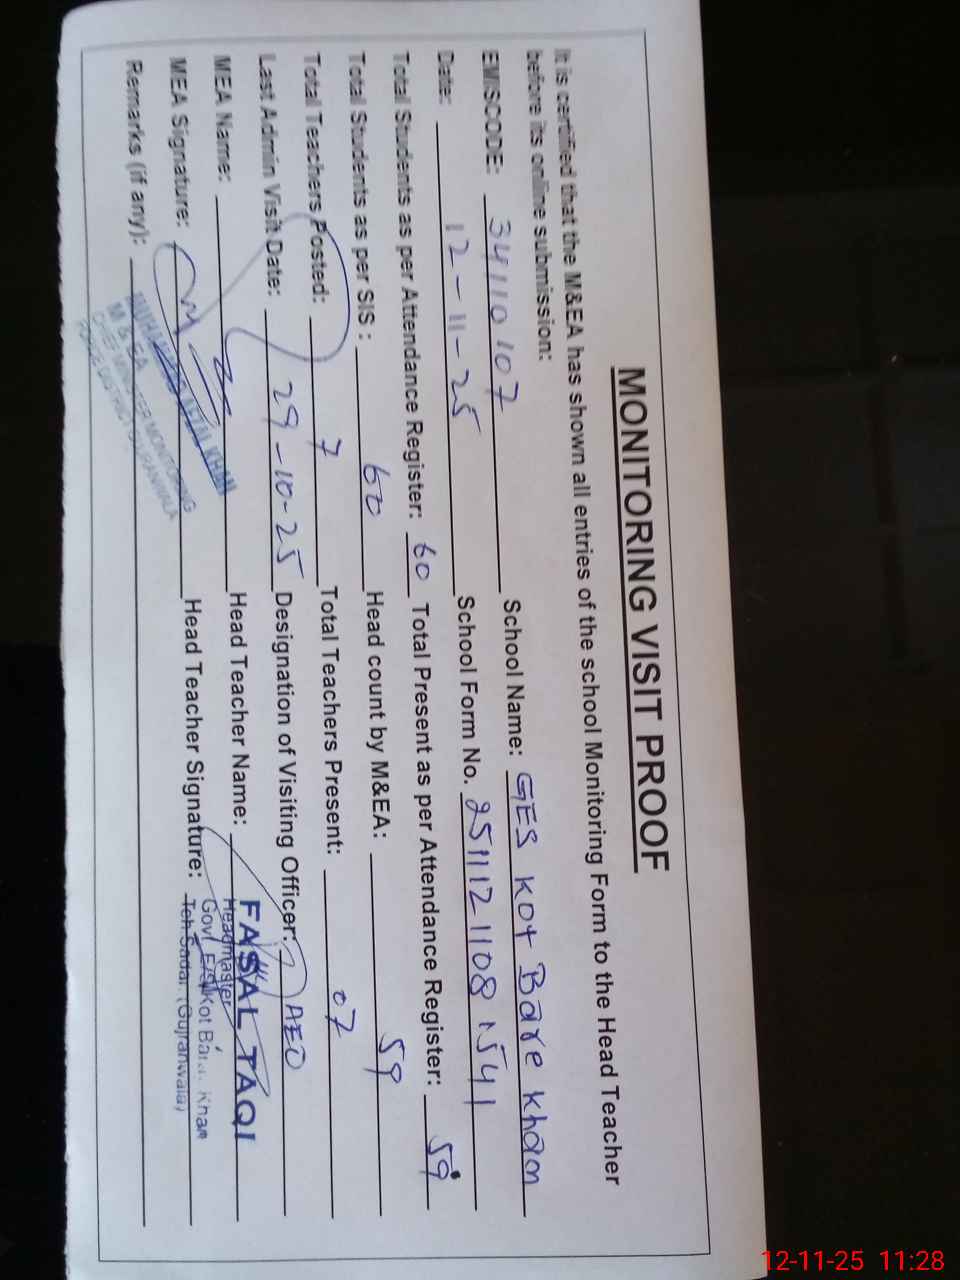 MONITORING VISIT PROOF
It is certified that the M&EA has shown all entries of the school Monitoring Form to the Head Teacher
before its online submission:
EMISCODE: 34110107 School Name: GES Kot Bare Khan
Date: 12-11-25 School Form No. 25111211081541
Total Students as per Attendance Register: 60 Total Present as per Attendance Register: 59
Total Students as per SIS : 60 Head count by M&EA: 59
Total Teachers Posted: 7 Total Teachers Present: 07
Last Admin Visit Date: 29-10-25 Designation of Visiting Officer: AEO
MEA Name: Head Teacher Name: FASAL TAQI
MEA Signature: Head Teacher Signature:
Headmaster
Govt E/S Kot Bara Khan
Teh Sadar (Gujranwala)
Remarks (if any):
KHAN
M & EA
CHIEF MINISTER MONITORING
FORCE DISTRICT GUJRANWALA
12-11-25 11:28